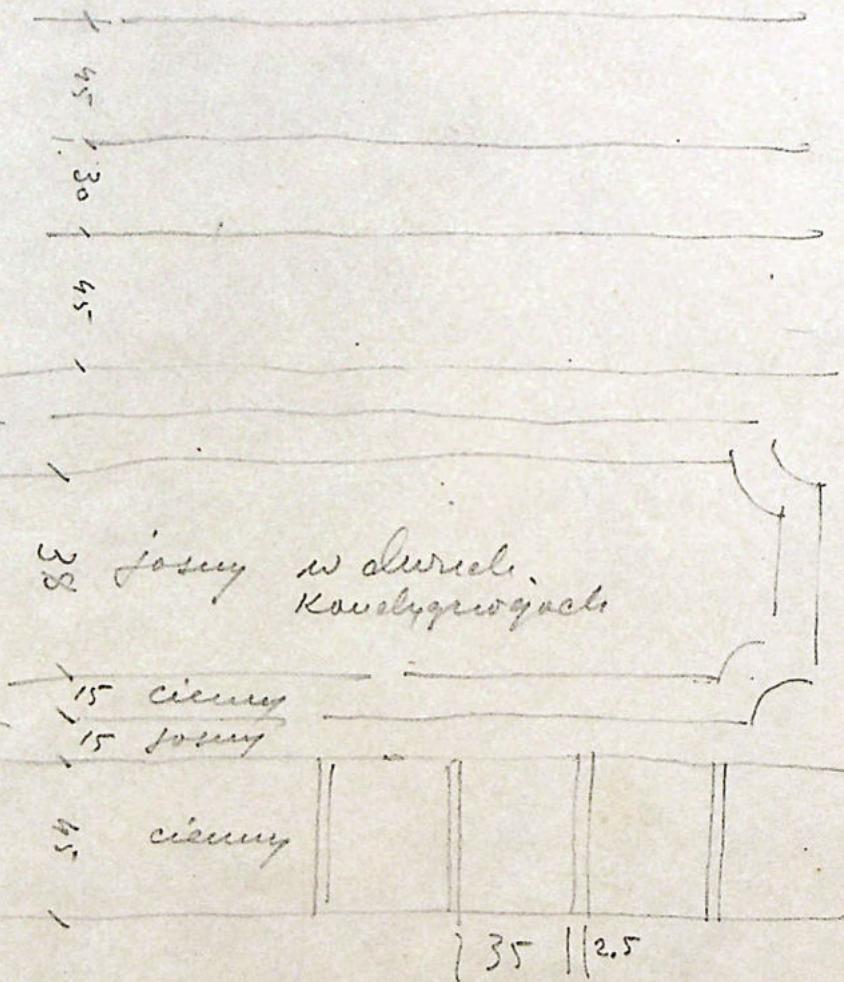 45
30
45
38 jasny w dwuch
kondygnacjach
15 ciemny
15 jasny
45 ciemny
35 2.5